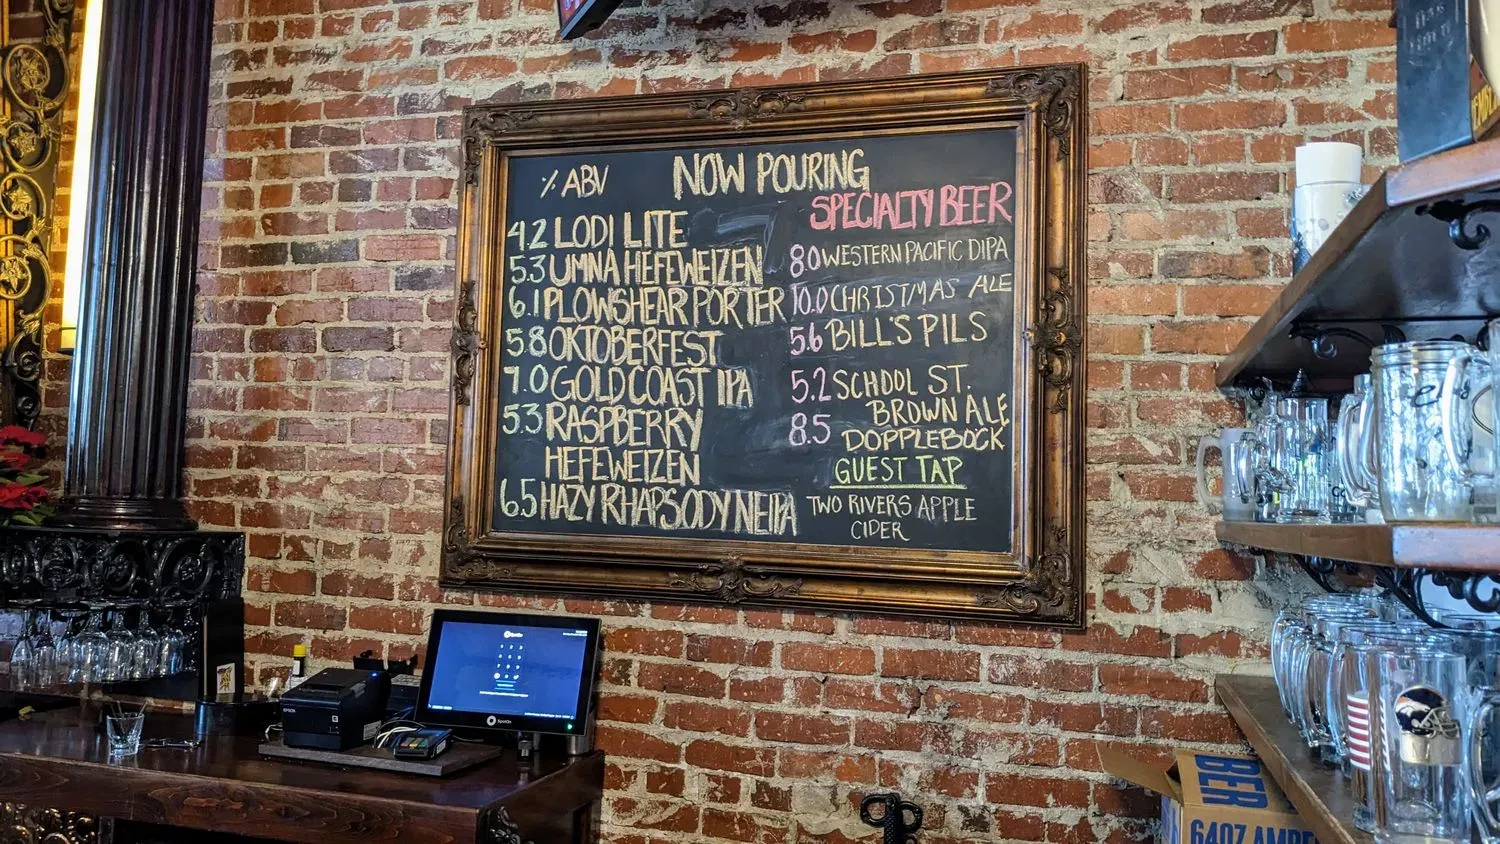 % ABV NOW POURING
4.2 LODI LITE
5.3 UMNA HEFEWEIZEN
6.1 PLOWSHEAR PORTER
5.8 OKTOBERFEST
7.0 GOLD COAST IPA
5.3 RASPBERRY
HEFEWEIZEN
6.5 HAZY RHAPSODY NEIPA
SPECIALTY BEER
8.0 WESTERN PACIFIC DIPA
10.0 CHRISTMAS ALE
5.6 BILL'S PILS
5.2 SCHOOL ST.
BROWN ALE
8.5 DOPPLEBOCK
GUEST TAP
TWO RIVERS APPLE
CIDER
EPSON
SpotOn
SpotOn
64OZ AMBE